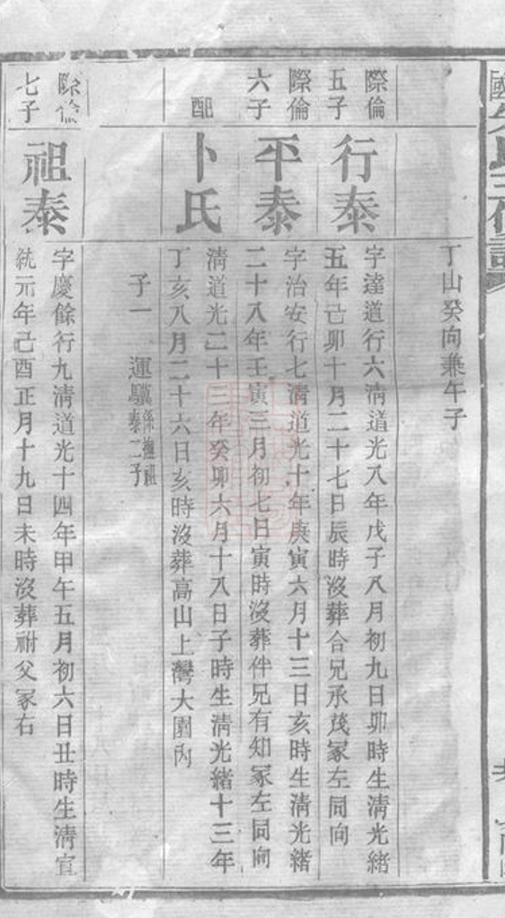 丁山癸向兼午子
際倫
五子
行泰
字達道行六淸道光八年戊子八月初九日卯時生淸光緒
五年己卯十月二十七日辰時沒葬合兄承茂冢左同向
際倫
六子
平泰
字治安行七淸道光十年庚寅六月十三日亥時生淸光緒
二十八年壬寅三月初七日寅時沒葬伴兄有知冢左同向
配
卜氏
淸道光二十三年癸卯六月十八日子時生淸光緒十三年
丁亥八月二十六日亥時沒葬高山上灣大園內
子一 運驥 係撫祖
泰二子
際倫
七子
祖泰
字慶餘行九淸道光十四年甲午五月初六日丑時生淸宣
統元年己酉正月十九日未時沒葬祔父冢右